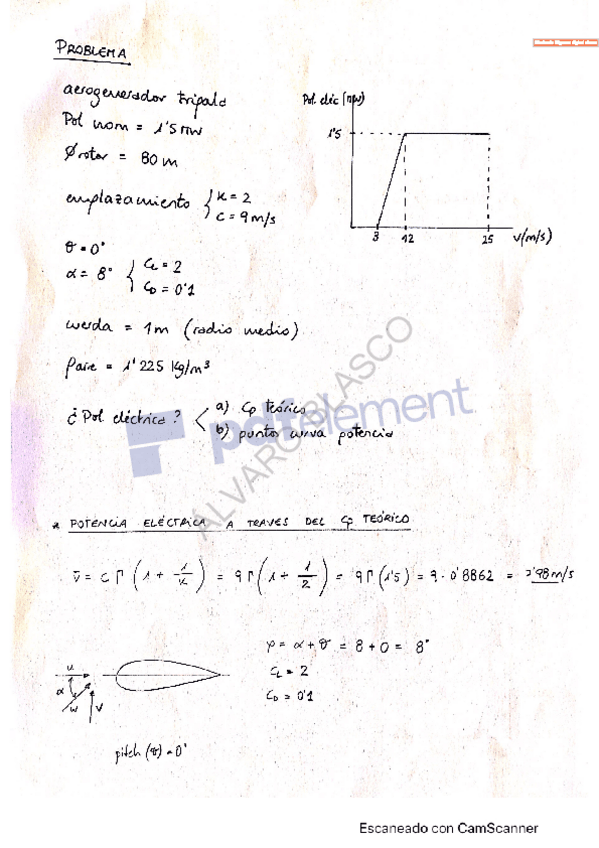 PROBLEMA
aerogenerador tripala
Pot nom = 1'5 MW
Ørotor = 80 m
emplazamiento { K = 2
C = 9 m/s
θ = 0°
α = 8° { CL = 2
CD = 0'1
cuerda = 1m (radio medio)
ρaire = 1'225 Kg/m³
¿Pot eléctrica? < a) Cp teórico
b) puntos curva potencia
Pot. eléc (MW)
1'5
3 12 25 V(m/s)
pdfelement
ALVARO BLASCO
* POTENCIA ELÉCTRICA A TRAVES DEL Cp TEÓRICO
v̄ = C Γ (1 + 1/K) = 9 Γ (1 + 1/2) = 9 Γ (1'5) = 9 · 0'8862 = 7'98 m/s
φ = α + θ = 8 + 0 = 8°
CL = 2
CD = 0'1
u
α
w
V
pitch (θ) = 0°
Escaneado con CamScanner